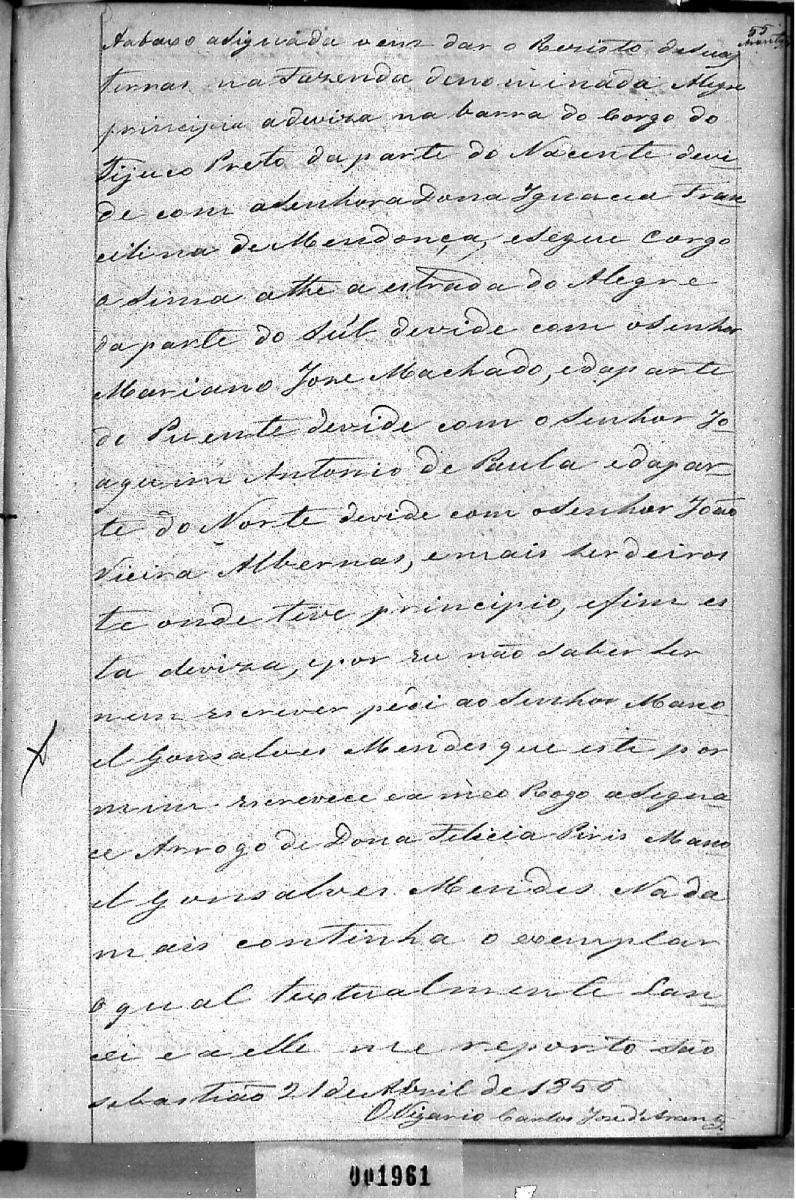 55
Aabaxo asignada vem dar o Rezisto de suas
terras na Fazenda denominada Alegre
principia a deviza na barra do Corgo do
Tijuco Preto da parte do Nacente devi
de com a Senhora Dona Ignacia Fran
celina de Mendonça, e segue Corgo
a sima athe a estrada do Alegre
da parte do Sul devide com o Senhor
Mariano Jose Machado, e da parte
do Puente devide com o Senhor Jo
aquim Antonio de Paula e da par
te do Norte devide com o Senhor João
Vieira Albernas, e mais herdeiros
te onde teve principio, e fim es
ta deviza, e por eu não saber ler
nem escrever pedi ao Senhor Mano
el Gonsalves Mendes que este por
mim escrevece e a meo Rogo asigna
ce Arrogo de Dona Felicia Piris Mano
el Gonsalves Mendes Nada
mais continha o exemplar
o qual textualmente Lan
cei e a elle me reporto São
Sebastião 21 de Abril de 1856
O Vigario Carlos Jose d'
001961